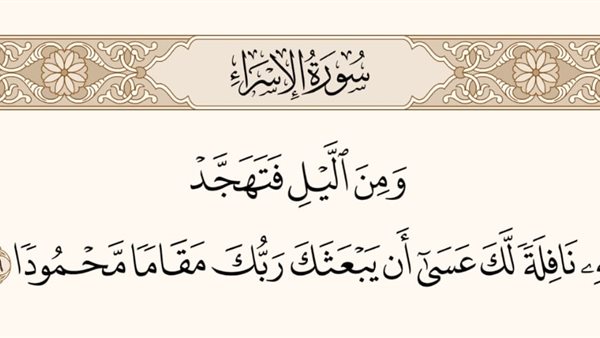 سُورَةُ الإِسْرَاءِ
وَمِنَ ٱلَّيْلِ فَتَهَجَّدْ
نَافِلَةً لَّكَ عَسَىٰٓ أَن يَبْعَثَكَ رَبُّكَ مَقَامًا مَّحْمُودًا